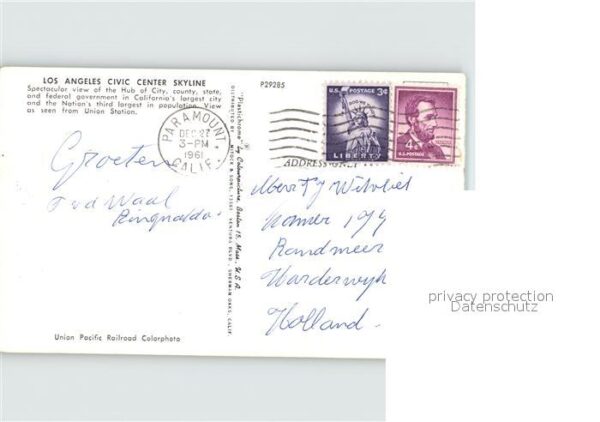 LOS ANGELES CIVIC CENTER SKYLINE
Spectacular view of the Hub of City, county, state,
and federal government in California's largest city
and the Nation's third largest in population. View
as seen from Union Station.
P29285
"Plastichrome" ® by Colourpicture, Boston 15, Mass. U.S.A.
DISTRIBUTED BY MITOCK & SONS, 13561 VENTURA BLVD., SHERMAN OAKS, CALIF.
PARAMOUNT
DEC 27
3-PM
1961
CALIF.
U.S. POSTAGE
3¢
IN GOD WE TRUST
LIBERTY
4¢
U.S. POSTAGE
ADDRESS
Groeten
F vd Waal
Albert
Kamer
Randmeer
Harderwyk
Holland
Union Pacific Railroad Colorphoto
privacy protection
Datenschutz